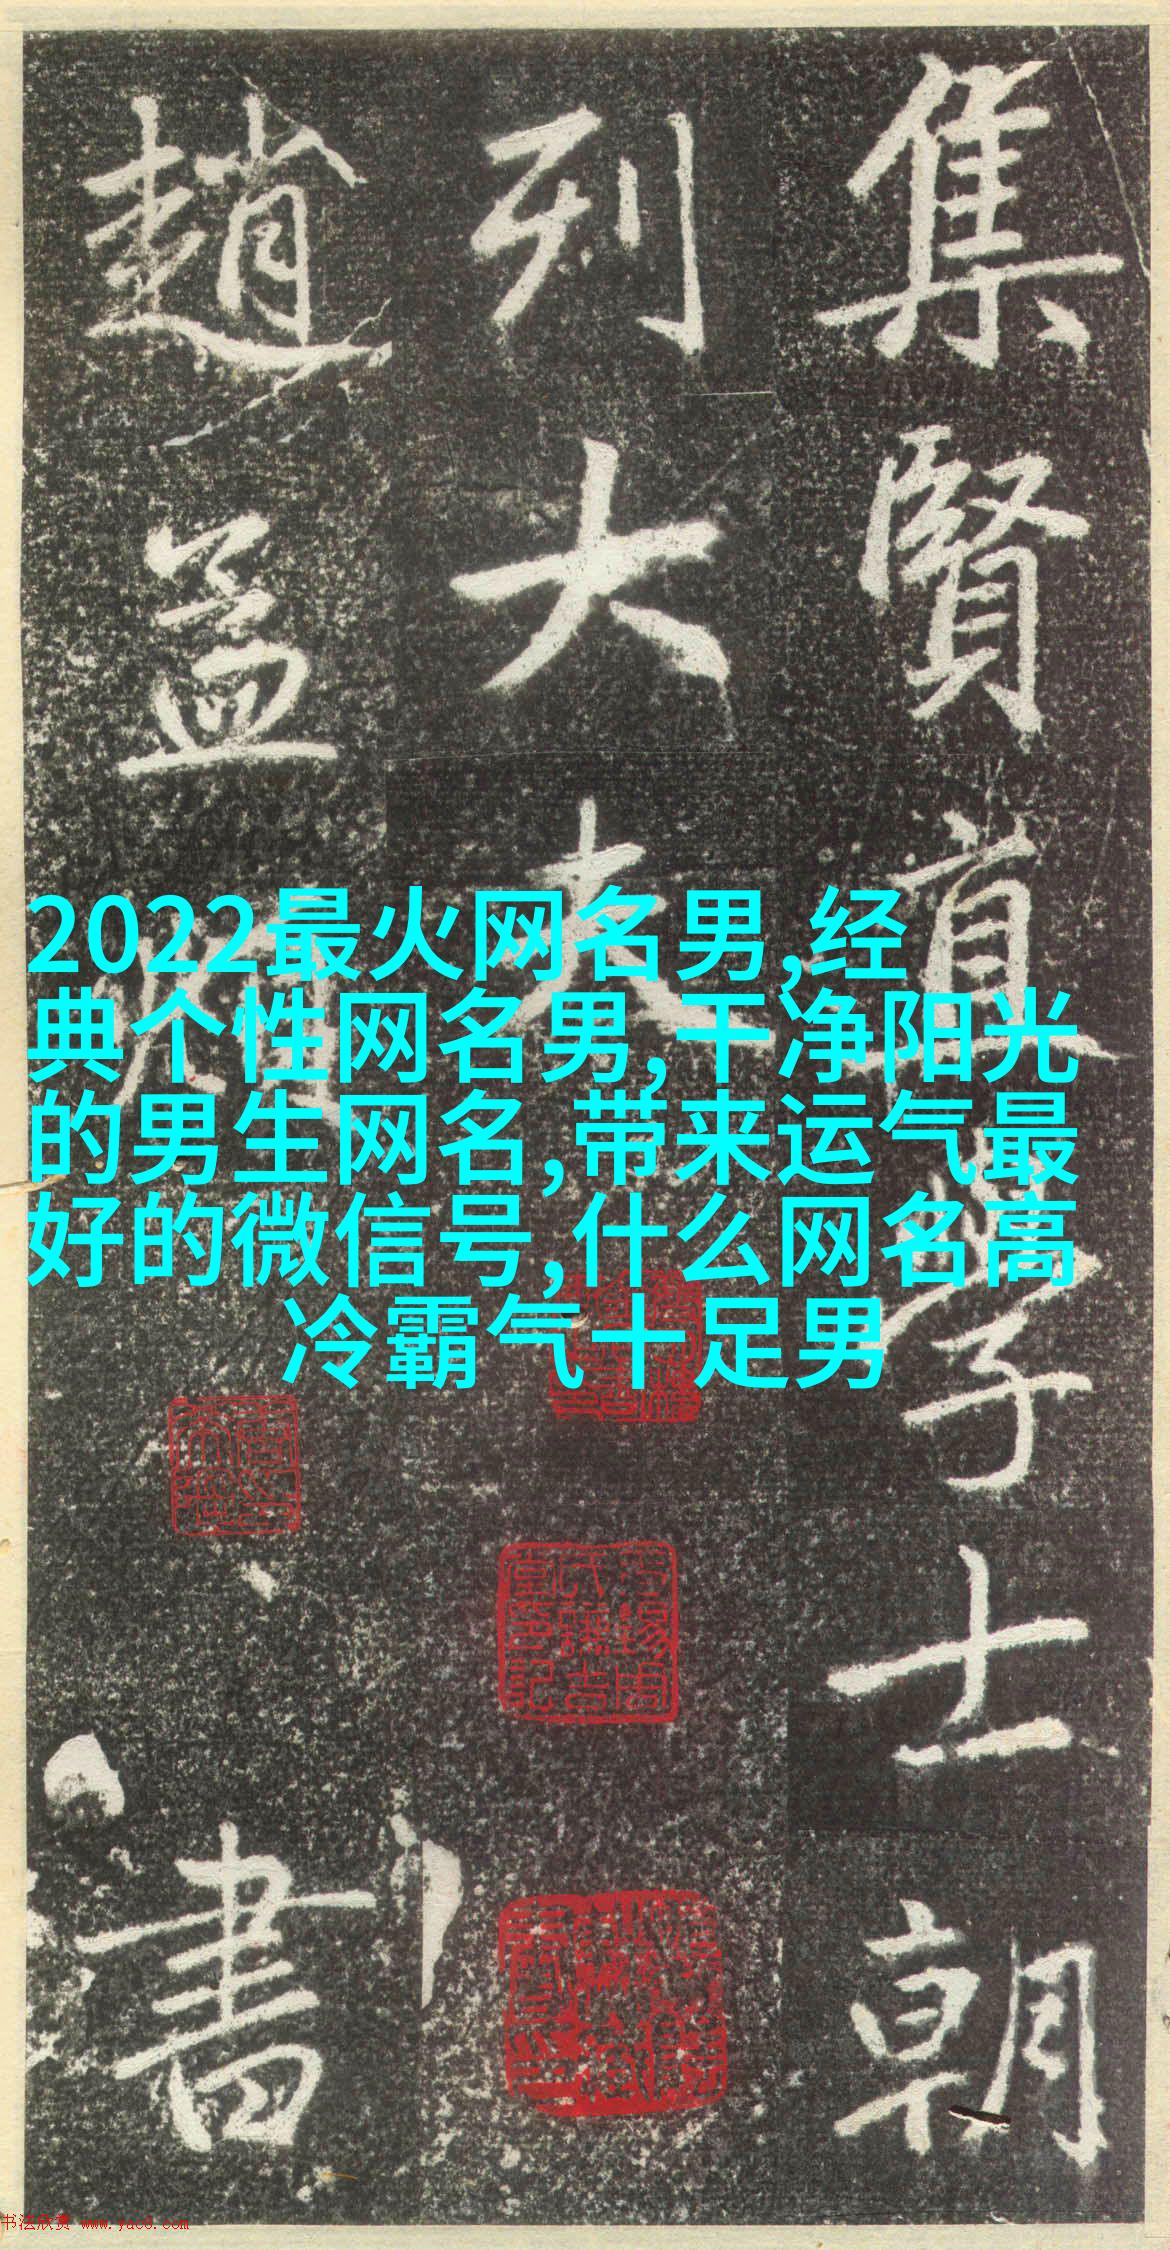 集賢直學士朝
列大夫
趙孟頫書
2022最火网名男,经
典个性网名男,干净阳光
的男生网名,带来运气最
好的微信号,什么网名高
冷霸气十足男
书法欣赏 www.yac8.com